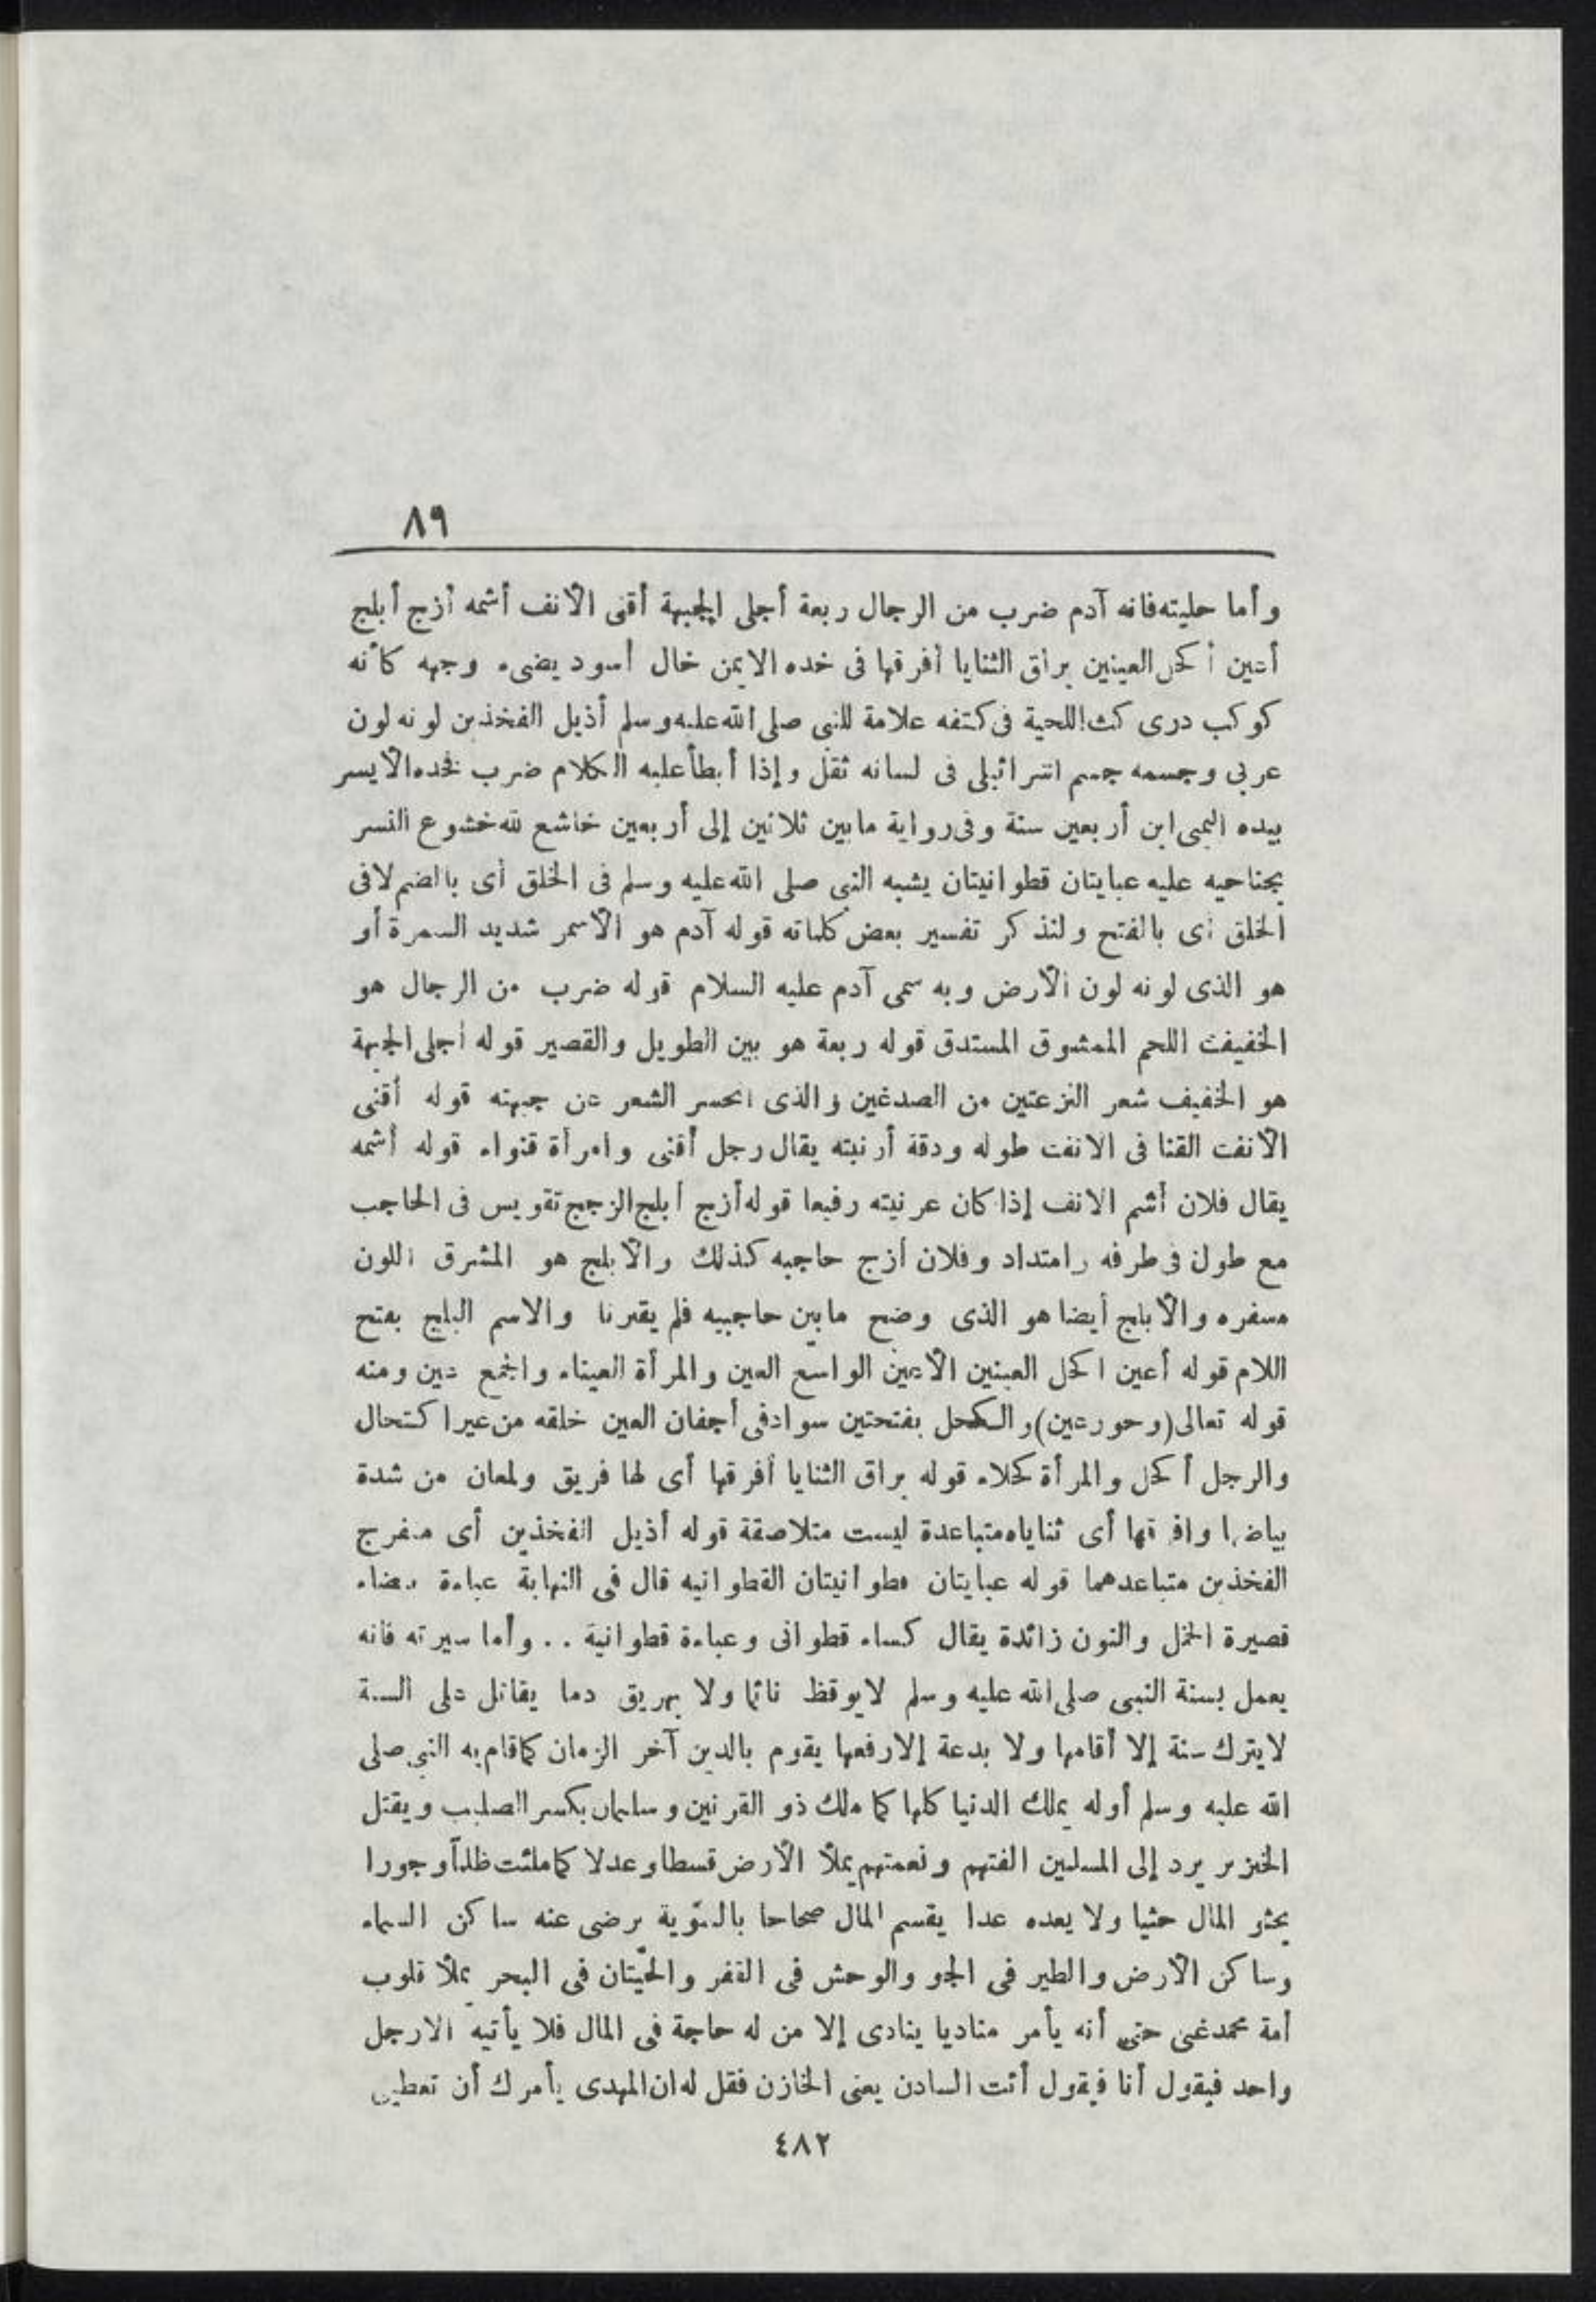 ٨٩
وأما حليته فانه آدم ضرب من الرجال ربعة أجلى الجبهة أقنى الأنف أشمه أزج أبلج
أعين أكحل العينين براق الثنايا أفرقها فى خده الايمن خال أسود يضىء وجهه كأنه
كوكب درى كث اللحية فى كتفه علامة للنبى صلى الله عليه وسلم أذيل الفخذين لونه لون
عربى وجسمه جسم اسرائيلى فى لسانه ثقل وإذا أبطأ عليه الكلام ضرب فخذه الأيسر
بيده اليمنى ابن أربعين سنة وفى رواية مابين ثلاثين إلى أربعين خاشع لله خشوع النسر
بجناحيه عليه عبايتان قطوانيتان يشبه النبى صلى الله عليه وسلم فى الخلق أى بالضم لافى
الخلق أى بالفتح ولنذكر تفسير بعض كلماته قوله آدم هو الأسمر شديد السمرة أو
هو الذى لونه لون الأرض وبه سمى آدم عليه السلام قوله ضرب من الرجال هو
الخفيف اللحم الممشوق المستدق قوله ربعة هو بين الطويل والقصير قوله أجلى الجبهة
هو الخفيف شعر النزعتين من الصدغين والذى انحسر الشعر عن جبهته قوله أقنى
الأنف القنا فى الانف طوله ودقة أرنبته يقال رجل أقنى وامرأة قنواء قوله أشمه
يقال فلان أشم الانف إذا كان عرنيته رفيعا قوله أزج أبلج الزجج تقويس فى الحاجب
مع طول فى طرفه وامتداد وفلان أزج حاجبه كذلك والأبلج هو المشرق اللون
مسفره والأبلج أيضا هو الذى وضح مابين حاجبيه فلم يقترنا والاسم البلج بفتح
اللام قوله أعين اكحل العينين الأعين الواسع العين والمرأة العيناء والجمع عين ومنه
قوله تعالى (وحور عين) والكحل بفتحتين سواد فى أجفان العين خلقه من غير اكتحال
والرجل أكحل والمرأة كحلاء قوله براق الثنايا أفرقها أى لها فريق ولمعان من شدة
بياضها وافرقها أى ثناياه متباعدة ليست متلاصقة قوله أذيل الفخذين أى منفرج
الفخذين متباعدهما قوله عبايتان قطوانيتان القطوانيه قال فى النهاية عباءة بيضاء
قصيرة الخمل والنون زائدة يقال كساء قطوانى وعباءة قطوانية .. وأما سيرته فانه
يعمل بسنة النبى صلى الله عليه وسلم لايوقظ نائما ولا يهريق دما يقاتل على السنة
لايترك سنة إلا أقامها ولا بدعة إلا رفعها يقوم بالدين آخر الزمان كما قام به النبى صلى
الله عليه وسلم أوله يملك الدنيا كلها كما ملك ذو القرنين وسليمان يكسر الصليب ويقتل
الخنزير يرد إلى المسلمين الفتهم ونعمتهم يملأ الأرض قسطا وعدلا كما ملئت ظلماً وجورا
يحثو المال حثيا ولا يعده عدا يقسم المال صحاحا بالسوية يرضى عنه ساكن السماء
وساكن الأرض والطير فى الجو والوحش فى القفر والحيتان فى البحر يملأ قلوب
أمة محمد غنى حتى أنه يأمر مناديا ينادى إلا من له حاجة فى المال فلا يأتيه الارجل
واحد فيقول أنا فيقول أئت السادن يعنى الخازن فقل له ان المهدى يأمرك أن تعطينى
٤٨٢